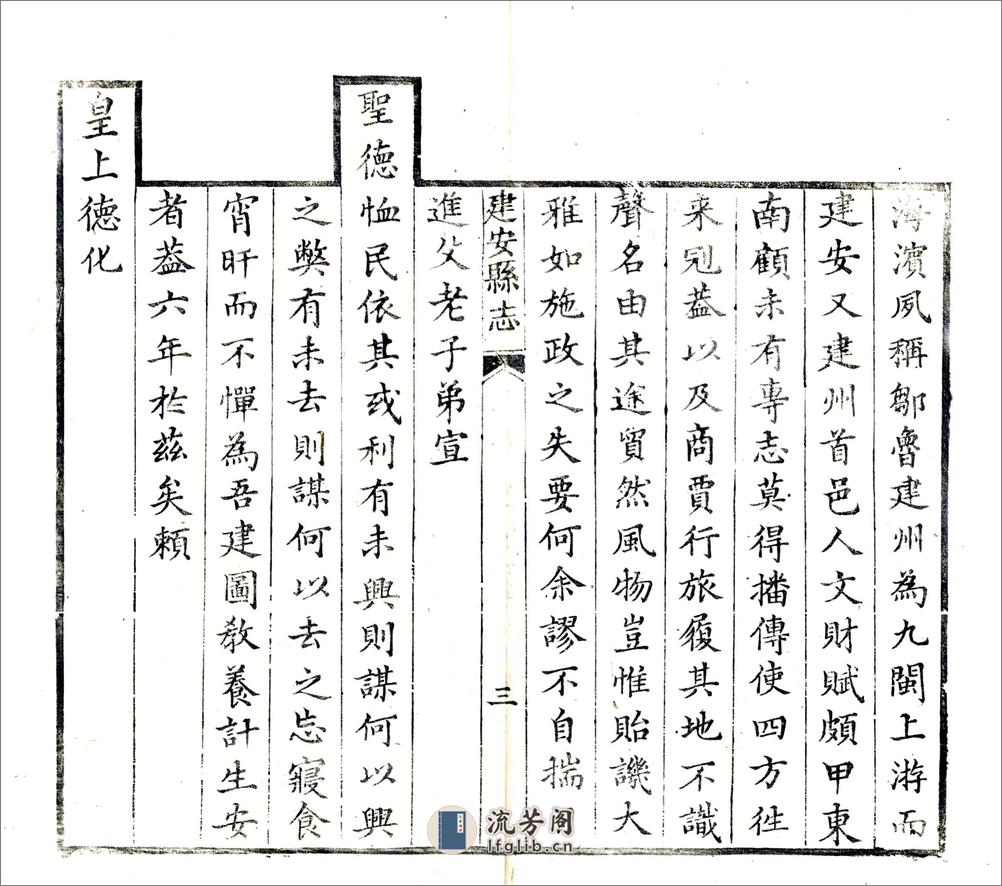 海濱夙稱鄒魯建州為九閩上游而
建安又建州首邑人文財賦頗甲東
南顧未有專志莫得播傳使四方徃
来冠葢以及商賈行旅履其地不識
聲名由其途貿然風物豈惟貽譏大
雅如施政之失要何余謬不自揣
建安縣志
三
進父老子弟宣
聖德恤民依其或利有未興則謀何以興
之獘有未去則謀何以去之忘寢食
宵旰而不憚為吾建圖教養計生安
者葢六年於兹矣賴
皇上德化
流芳阁
lfglib.cn